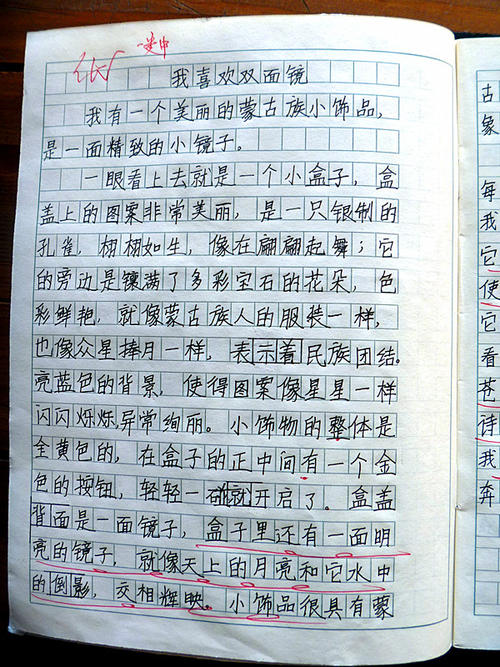 选中
我喜欢双面镜
我有一个美丽的蒙古族小饰品，
是一面精致的小镜子。
一眼看上去就是一个小盒子，盒
盖上的图案非常美丽，是一只银制的
孔雀，栩栩如生，像在翩翩起舞；它
的旁边是镶满了多彩宝石的花朵，色
彩鲜艳，就像蒙古族人的服装一样，
也像众星捧月一样，表示着民族团结。
亮蓝色的背景，使得图案像星星一样
闪闪烁烁，异常绚丽。小饰物的整体是
金黄色的，在盒子的正中间有一个金
色的按钮，轻轻一碰就开启了。盒盖
背面是一面镜子，盒子里还有一面明
亮的镜子，就像天上的月亮和它水中
的倒影，交相辉映。小饰品很具有蒙
古
象
每
我
它
使
它
看
苍
诗
我
奔